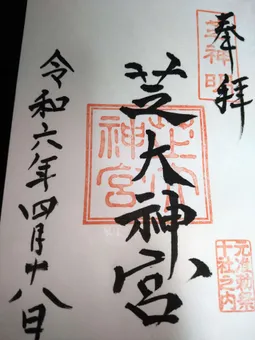 奉拝
芝神明
芝大神宮
芝大神宮
元准勅祭
十社之内
令和六年四月十八日